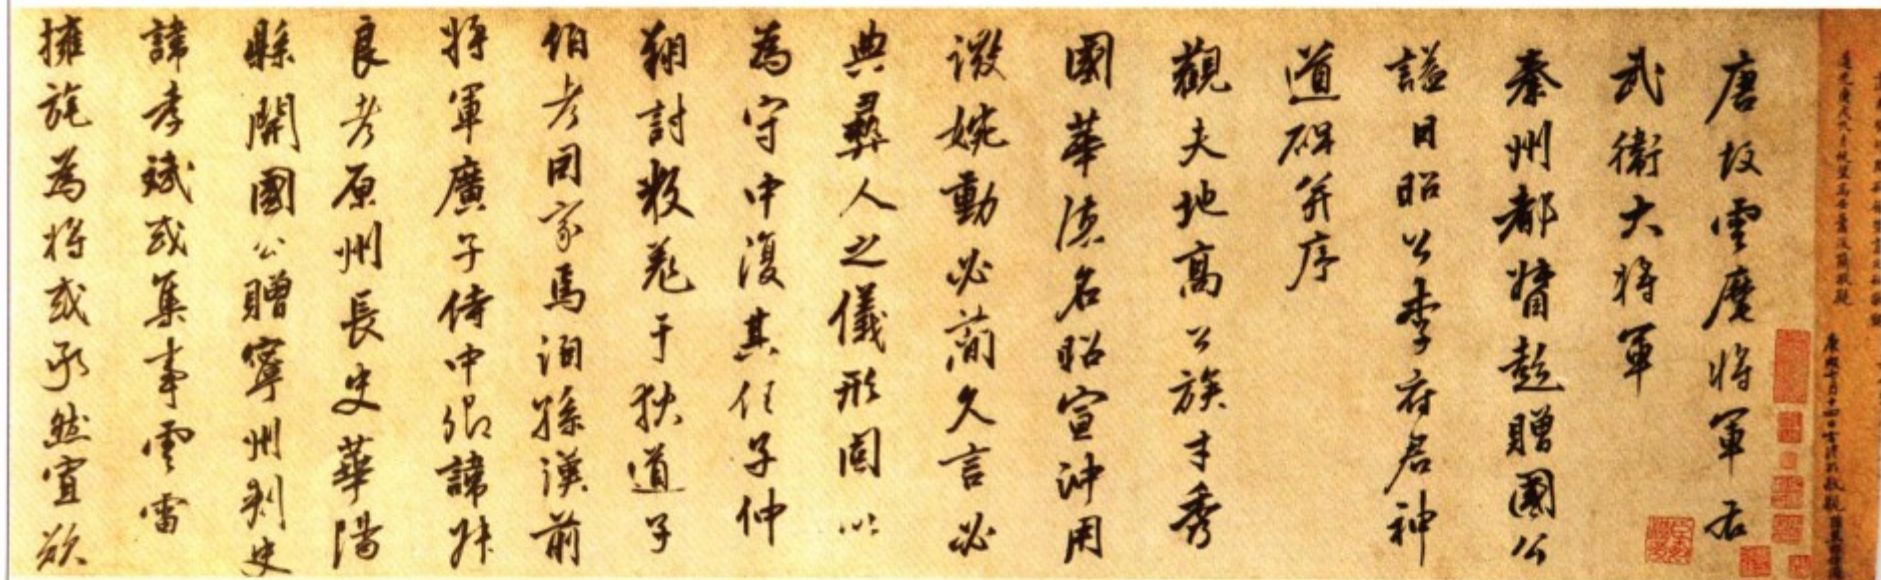 唐故雲麾將軍右
武衛大將軍
秦州都督彭贈國公
諡曰昭公李府君神
道碑并序
觀夫地高公族才秀
國華德名昭宣沖用
微婉動必簡久言必
典彝人之儀形固以
為守中復其任子仲
翔討叛羌于狄道子
伯考因家焉洎孫漢前
將軍廣子侍中卿諱叔
良考原州長史華陽
縣開國公贈寧州刺史
諱孝斌或集事雲雷
擁旄為將或承然宣欲